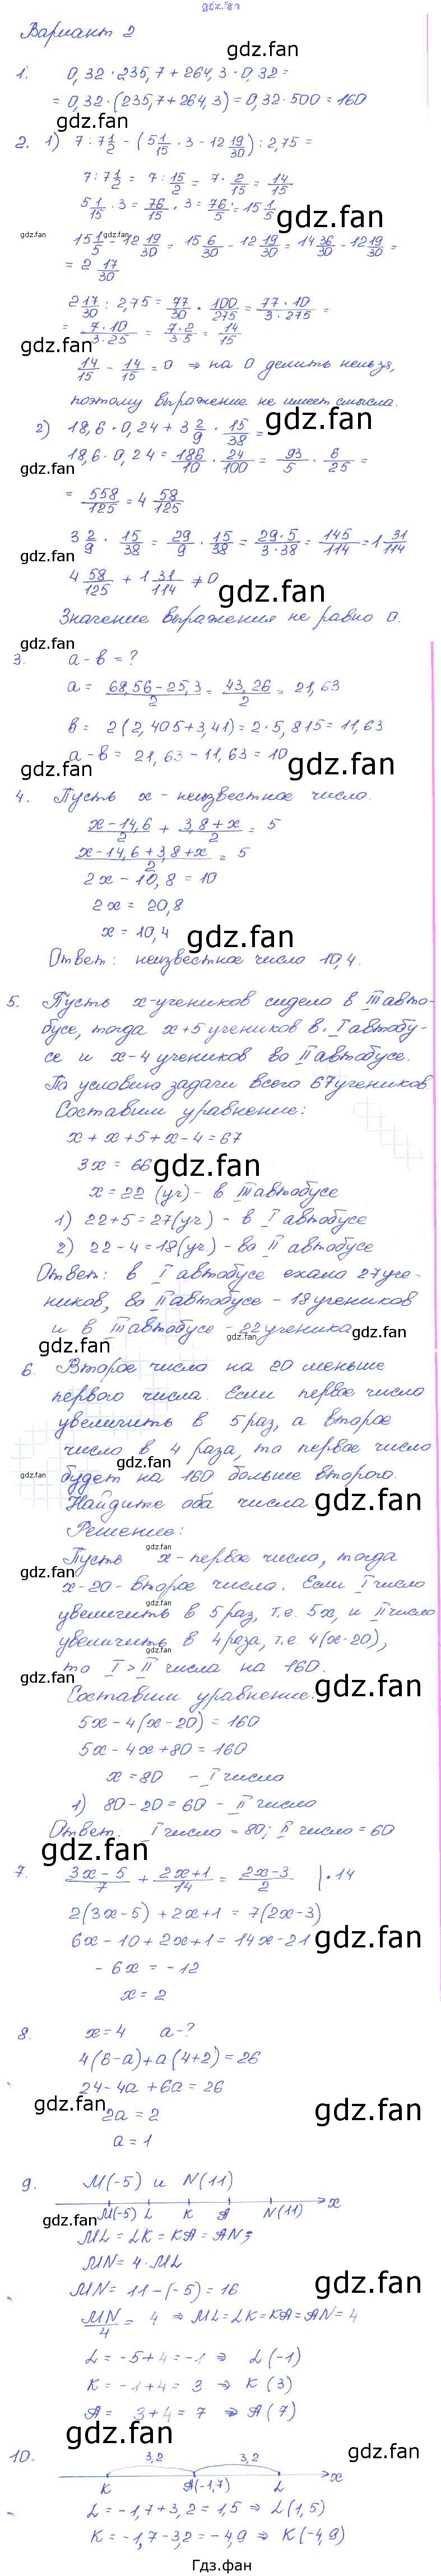 gdz.fan
Вариант 2
1. 0,32 · 235,7 + 264,3 · 0,32 =
= 0,32 · (235,7 + 264,3) = 0,32 · 500 = 160
2. 1) 7 : 7 1/2 - (5 1/15 · 3 - 12 19/30) : 2,75 =
7 : 7 1/2 = 7 : 15/2 = 7 · 2/15 = 14/15
5 1/15 · 3 = 76/15 · 3 = 76/5 = 15 1/5
15 1/5 - 12 19/30 = 15 6/30 - 12 19/30 = 14 36/30 - 12 19/30 =
= 2 17/30
2 17/30 : 2,75 = 77/30 · 100/275 = 77 · 10 / 3 · 275 =
= 7 · 10 / 3 · 25 = 7 · 2 / 3 · 5 = 14/15
14/15 - 14/15 = 0 ⇒ на 0 делить нельзя,
поэтому выражение не имеет смысла.
2) 18,6 · 0,24 + 3 2/9 · 15/38 =
18,6 · 0,24 = 186/10 · 24/100 = 93/5 · 6/25 =
= 558/125 = 4 58/125
3 2/9 · 15/38 = 29/9 · 15/38 = 29 · 5 / 3 · 38 = 145/114 = 1 31/114
4 58/125 + 1 31/114 ≠ 0
Значение выражения не равно 0.
3. a - b = ?
a = 68,56 - 25,3 / 2 = 43,26 / 2 = 21,63
b = 2(2,405 + 3,41) = 2 · 5,815 = 11,63
a - b = 21,63 - 11,63 = 10
4. Пусть x - неизвестное число.
x - 14,6 / 2 + 3,8 + x / 2 = 5
x - 14,6 + 3,8 + x / 2 = 5
2x - 10,8 = 10
2x = 20,8
x = 10,4
Ответ: неизвестное число 10,4.
5. Пусть x-учеников сидело в III авто-
бусе, тогда x+5 учеников в I автобу-
се и x-4 учеников во II автобусе.
По условию задачи всего 67 учеников.
Составим уравнение:
x + x + 5 + x - 4 = 67
3x = 66
x = 22 (уч) - в III автобусе
1) 22 + 5 = 27 (уч) - в I автобусе
2) 22 - 4 = 18 (уч) - во II автобусе
Ответ: в I автобусе ехало 27 уче-
ников, во II автобусе - 18 учеников
и в III автобусе - 22 ученика
6. Второе число на 20 меньше
первого числа. Если первое число
увеличить в 5 раз, а второе
число в 4 раза, то первое число
будет на 160 больше второго.
Найдите оба числа
Решение:
Пусть x - первое число, тогда
x - 20 - второе число. Если I число
увеличить в 5 раз, т.е. 5x, и II число
увеличить в 4 раза, т.е. 4(x-20),
то I > II числа на 160.
Составим уравнение.
5x - 4(x - 20) = 160
5x - 4x + 80 = 160
x = 80 - I число
1) 80 - 20 = 60 - II число
Ответ. I число = 80; II число = 60
7. 3x - 5 / 7 + 2x + 1 / 14 = 2x - 3 / 2 | · 14
2(3x - 5) + 2x + 1 = 7(2x - 3)
6x - 10 + 2x + 1 = 14x - 21
- 6x = - 12
x = 2
8. x = 4 a - ?
4(6 - a) + a(4 + 2) = 26
24 - 4a + 6a = 26
2a = 2
a = 1
9. M(-5) и N(11)
M(-5) L K A N(11) x
ML = LK = KA = AN;
MN = 4 · ML
MN = 11 - (-5) = 16
MN / 4 = 4 ⇒ ML = LK = KA = AN = 4
L = -5 + 4 = -1 ⇒ L(-1)
K = -1 + 4 = 3 ⇒ K(3)
A = 3 + 4 = 7 ⇒ A(7)
10. 3,2 3,2
K A(-1,7) L x
L = -1,7 + 3,2 = 1,5 ⇒ L(1,5)
K = -1,7 - 3,2 = -4,9 ⇒ K(-4,9)
Гдз.фан